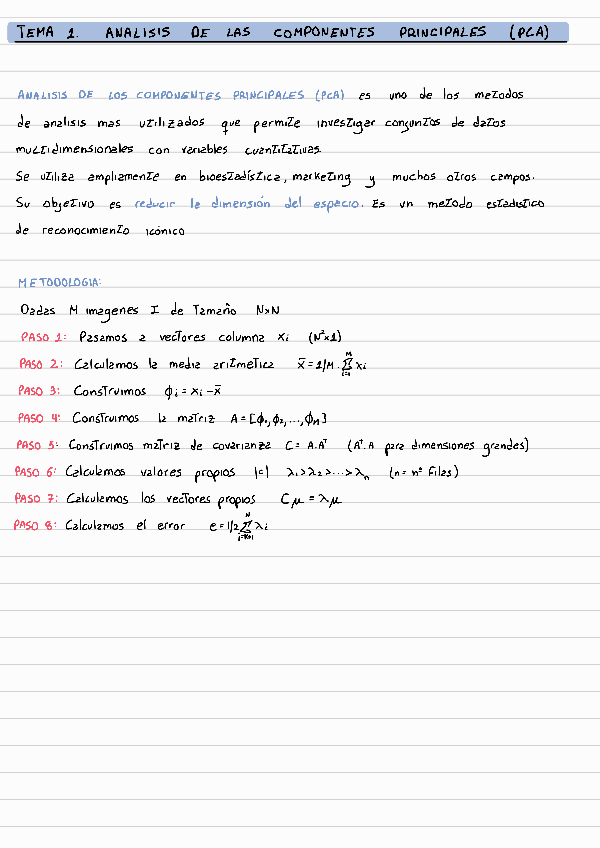 TEMA 1. ANALISIS DE LAS COMPONENTES PRINCIPALES (PCA)
ANALISIS DE LOS COMPONENTES PRINCIPALES (PCA) es uno de los metodos
de analisis mas utilizados que permite investigar conjuntos de datos
multidimensionales con variables cuantitativas.
Se utiliza ampliamente en bioestadística, marketing y muchos otros campos.
Su objetivo es reducir la dimensión del espacio. Es un metodo estadistico
de reconocimiento icónico
METODOLOGIA:
Dadas M imagenes I de Tamaño N×N
PASO 1: Pasamos a vectores columna xi (N²×1)
PASO 2: Calculamos la media aritmetica x̄ = 1/M · Σ_{i=1}^{M} xi
PASO 3: Construimos ϕi = xi - x̄
PASO 4: Construimos la matriz A = [ϕ1, ϕ2, ..., ϕM]
PASO 5: Construimos matriz de covarianza C = A.Aᵀ (Aᵀ.A para dimensiones grandes)
PASO 6: Calculamos valores propios |=| λ1 > λ2 > ... > λn (n = nº filas)
PASO 7: Calculamos los vectores propios Cμ = λμ
PASO 8: Calculamos el error e = 1/2 Σ_{i=k+1}^{N} λi